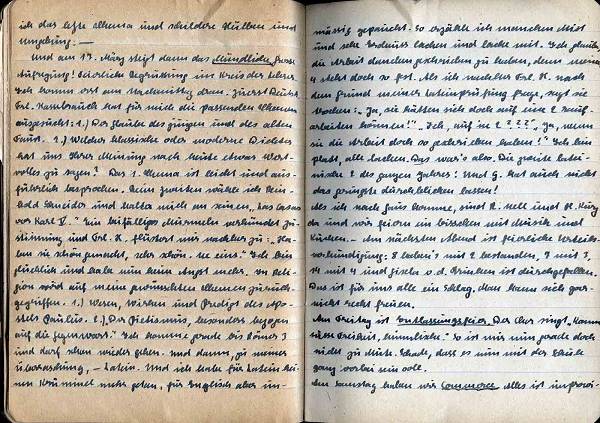 ich das letzte Thema und schildere Nußbau und
Umgebung. —
Und am 17. März steigt dann das Mündliche. Große
Aufregung! Feierliche Begrüßung im Kreis der Lehrer.
Ich komm erst am Nachmittag dran. Zuerst Deutsch.
Frl. hat für mich die passenden Themen
ausgesucht: 1.) Der Glaube des jungen und des alten
Faust. 2.) Welcher klassische oder moderne Dichter
hat uns Ihrer Meinung nach heute etwas Wert-
volles zu sagen? Das 1. Thema ist leicht und aus-
führlich besprochen. Beim zweiten wähle ich Rein-
hold Schneider und halte mich an seinen "Las Casas
vor Karl V." Ein beifälliges Murmeln verkündet Zu-
stimmung und Frl. K. flüstert mir nachher zu: "Ha-
ben Sie schön gemacht, sehr schön. Ne eins." Ich bin
glücklich und habe nun kein Angst mehr. In Reli-
gion wird auf meine gewünschten Themen zurück-
gegriffen. 1.) Wesen, Wirken und Predigt des Apo-
stels Paulus. 2.) "Der Pietismus, besonders bezogen
auf die Gegenwart." Ich komme gerade bis Römer 3
und darf schon wieder gehen. Und dann, zu meiner
Überraschung, – Latein. Und ich habe für Latein kei-
nen Krümmel mehr getan, für Englisch aber un-
mässig gepaukt. So erzähle ich manchen Mist
und sehe Verdruss lachen und lache mit. Ich glaube,
die Arbeit daneben geschrieben zu haben, denn meine
4 steht doch so fest. Als ich nachher Frl. K. nach
dem Grund meiner Lateinprüfung frage, sagt sie
trocken: "Ja, Sie hätten sich doch auf eine 2 rauf-
arbeiten können!" "Ich, auf ne 2 ???" "Ja, wenn
Sie die Arbeit doch so geschrieben haben!" Ich bin
platt, alle lachen. Das war's also. Die zweite latei-
nische 2 des ganzen Jahres! Und G. hat auch nicht
das geringste durchblicken lassen!
Als ich nach Haus komme, sind R. Hell und R. Kurz
da und wir feiern ein bisschen mit Musik und
Kuchen. – Am nächsten Abend ist feierliche Verkün-
verkündigung: 8 haben's mit 2 bestanden, 7 mit 3,
14 mit 4 und Gisela v. d. Brinken ist durchgefallen.
Das ist für uns alle ein Schlag. Man kann sich gar-
nicht recht freuen.
Am Freitag ist Entlassungsfeier. Der Chor singt "Komm
süsse Freiheit, himmlische." So ist mir nun gerade doch
nicht zu Mute. Schade, dass es nun mit der Schule
ganz vorbei sein soll.
Am Samstag haben wir Commerce. Alles ist improvi-